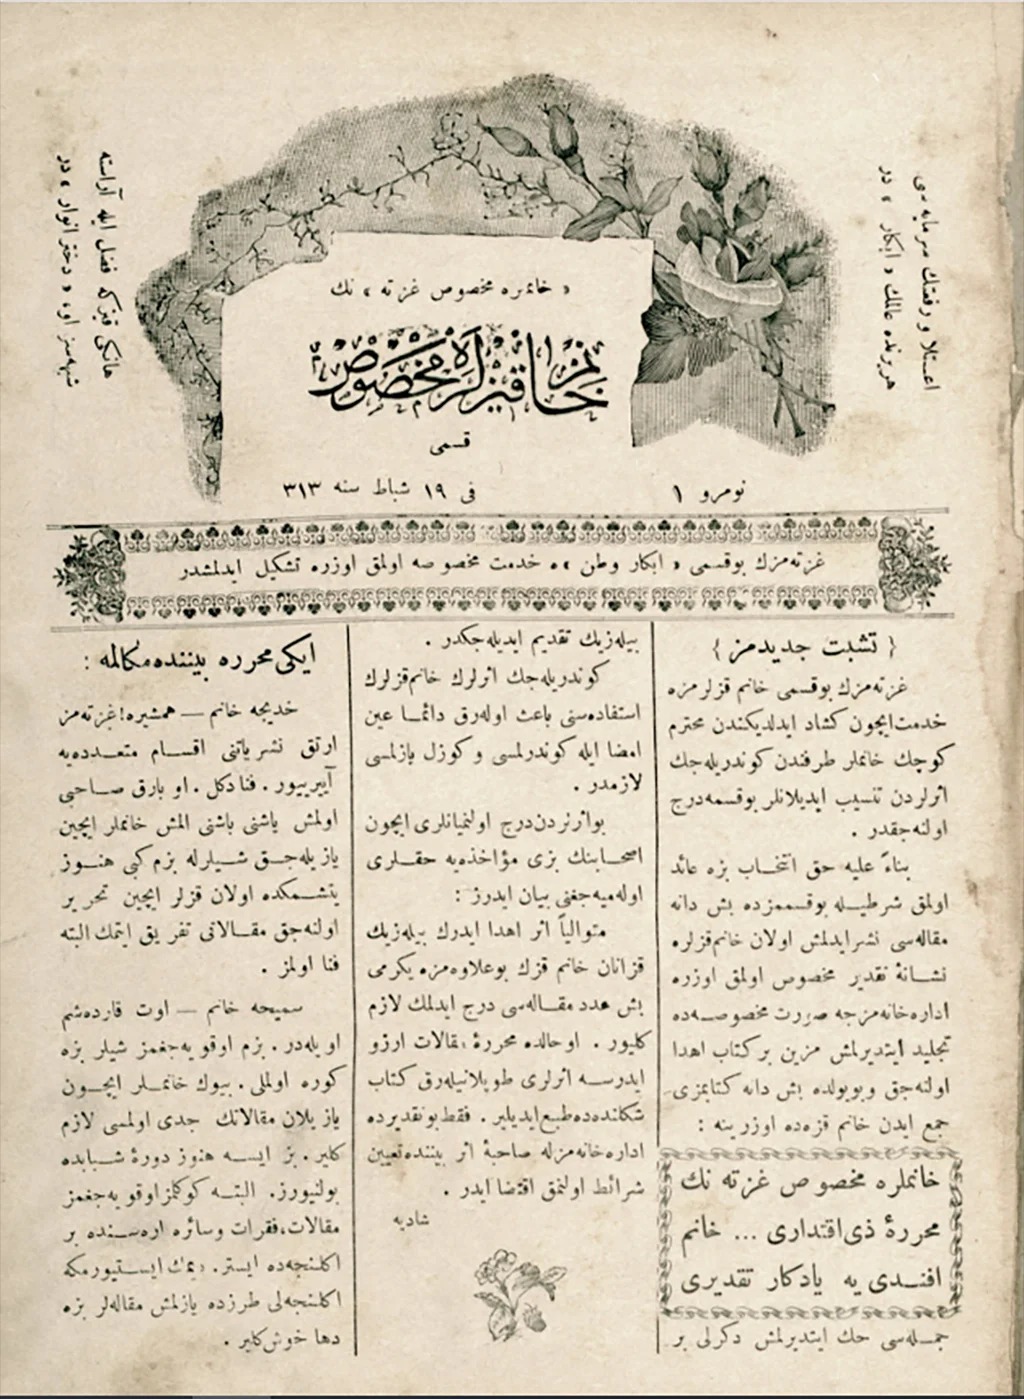 اعتلا و رفعتك سرمايه سی
هر يرنده عالمك « ابكار » در
هانكی قيزكه فضل ايله آراسته
شبهه سز او، « دختر انوار » در
« خانملره مخصوص غزته » نك
خانم قيزلره مخصوص
قسمی
نومرو ١
فی ١٩ شباط سنه ٣١٣
غزته مزك بوقسمی « ابكار وطن » ه خدمت مخصوصه اولمق اوزره تشكيل ايدلمشدر
{ تشبث جديدمز }
غزته مزك بوقسمی خانم قزلرمزه
خدمت ايچون كشاد ايدلديكندن محترم
كوچك خانملر طرفندن كوندريله جك
اثرلردن تنسيب ايديلانلر بوقسمه درج
اولنه جقدر .
بناءً عليه حق انتخاب بزه عائد
اولمق شرطيله بوقسممزده بش دانه
مقاله سی نشر ايدلمش اولان خانم قزلره
نشانهٔ تقدير مخصوص اولمق اوزره
اداره خانه مزجه صورت مخصوصه ده
تجليد ايتديرلمش مزين بر كتاب اهدا
اولنه جق و بويولده بش دانه كتابمزی
جمع ايدن خانم قزه ده اوزرينه :
خانملره مخصوص غزته نك
محررهٔ ذی اقتداری ... خانم
افندی يه يادكار تقديری
جمله سی حك ايتديرلمش دكرلی بر
بيله زيك تقديم ايديله جكدر .
كوندريله جك اثرلرك خانم قزلرك
استفاده سنی باعث اوله رق دائما عين
امضا ايله كوندرلمسی و كوزل يازلمسی
لازمدر .
بواثرلردن درج اولنميانلری ايچون
اصحابنك بزی مؤاخذه يه حقلری
اوله ميه جغنی بيان ايدرز :
متوالياً اثر اهدا ايدرك بيله زيك
قزانان خانم قزك بوعلاوه مزه يكرمی
بش عدد مقاله سی درج ايدلمك لازم
كليور . اوحالده محررهٔ مقالات ارزو
ايدرسه اثرلری طوپلانيله رق كتاب
شكلنده ده طبع ايديلير . فقط بوتقديرده
اداره خانه مزله صاحبهٔ اثر بيننده تعيين
شرائط اولنمق اقتضا ايدر .
شاديه
ايكی محرره بيننده مكالمه :
خديجه خانم — همشيره! غزته مز
ارتق نشرياتنی اقسام متعدده يه
آييرييور . فنا دكل . او بارق صاحبی
اولمش ياشنی باشنی المش خانملر ايچين
يازيله جق شيلرله بزم كبی هنوز
يتشمكده اولان قزلر ايچين تحرير
اولنه جق مقالاتی تفريق ايتمك البته
فنا اولمز .
سميحه خانم — اوت قارده شم
اويله در . بزم اوقويه جغمز شيلر بزه
كوره اولملی . بيوك خانملر ايچون
يازيلان مقالاتك جدی اولمسی لازم
كلير . بز ايسه هنوز دورهٔ شبابده
بولنيورز . البته كوكلمز اوقويه جغمز
مقالات، فقرات و سائره اره سنده بر
اكلنجه ده ايستر . ديمك ايستيورمكه
اكلنجه لی طرزده يازلمش مقاله لر بزه
دها خوش كلير .